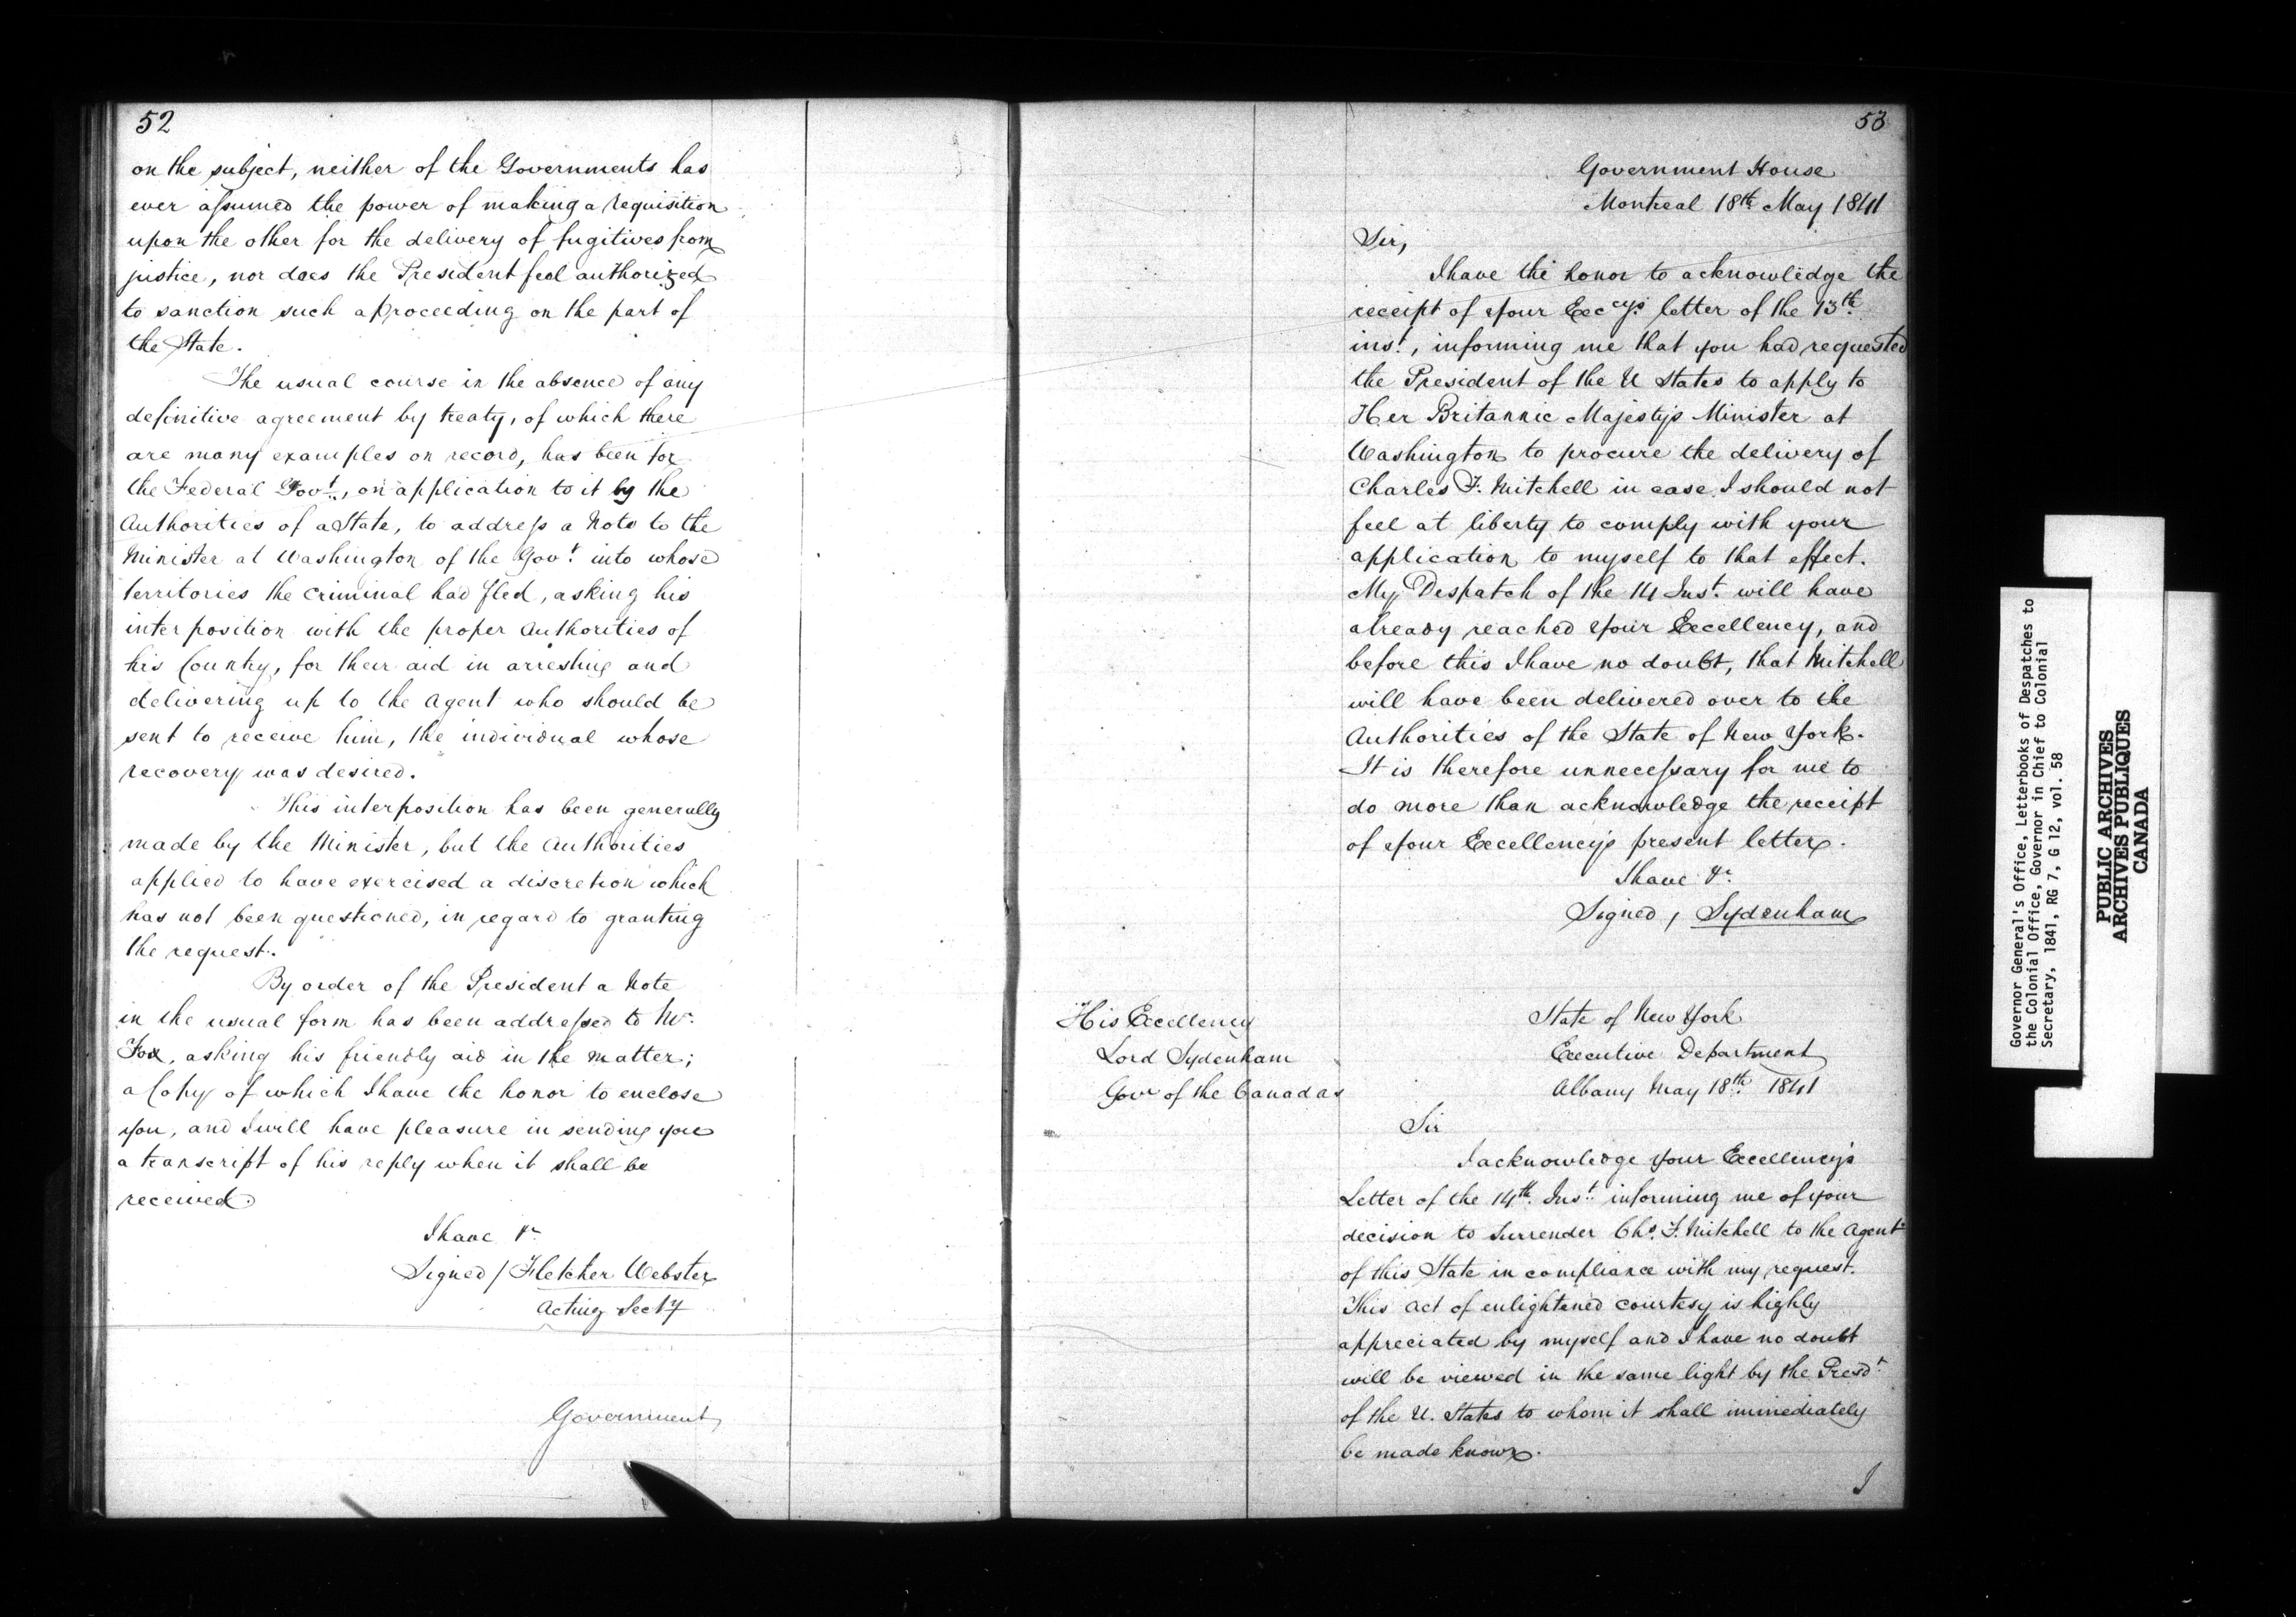 52
on the subject, neither of the Governments has
ever assumed the power of making a requisition
upon the other for the delivery of fugitives from
justice, nor does the President feel authorized
to sanction such a proceeding on the part of
the State.
The usual course in the absence of any
definitive agreement by treaty, of which there
are many examples on record, has been for
the Federal Govt., on application to it by the
Authorities of a State, to address a Note to the
Minister at Washington of the Govt. into whose
territories the criminal had fled, asking his
interposition with the proper Authorities of
his Country, for their aid in arresting and
delivering up to the Agent who should be
sent to receive him, the individual whose
recovery was desired.
This interposition has been generally
made by the Minister, but the Authorities
applied to have exercised a discretion which
has not been questioned, in regard to granting
the request.
By order of the President a Note
in the usual form has been addressed to Mr.
Fox, asking his friendly aid in the matter;
a Copy of which I have the honor to enclose
you, and I will have pleasure in sending you
a transcript of his reply when it shall be
received.
I have &c
Signed / Fletcher Webster
Acting Secty
Government
53
Government House
Montreal 18th May 1841
Sir,
I have the honor to acknowledge the
receipt of Your Exccys letter of the 13th
inst., informing me that you had requested
the President of the U States to apply to
Her Britannic Majesty's Minister at
Washington to procure the delivery of
Charles F. Mitchell in case I should not
feel at liberty to comply with your
application to myself to that effect.
My Despatch of the 14 Inst. will have
already reached Your Excellency, and
before this I have no doubt, that Mitchell
will have been delivered over to the
Authorities of the State of New York.
It is therefore unnecessary for me to
do more than acknowledge the receipt
of Your Excellency's present letter.
I have &c.
Signed / Sydenham
His Excellency
Lord Sydenham
Govr of the Canadas
State of New York
Executive Department
Albany May 18th 1841
Sir
I acknowledge Your Excellency's
Letter of the 14th Inst. informing me of your
decision to Surrender Chs. F. Mitchell to the Agent
of this State in compliance with my request.
This act of enlightened courtesy is highly
appreciated by myself and I have no doubt
will be viewed in the same light by the Presdt.
of the U. States to whom it shall immediately
be made known.
I
Governor General's Office, Letterbooks of Despatches to
the Colonial Office, Governor in Chief to Colonial
Secretary, 1841, RG 7, G 12, vol. 58
PUBLIC ARCHIVES
ARCHIVES PUBLIQUES
CANADA